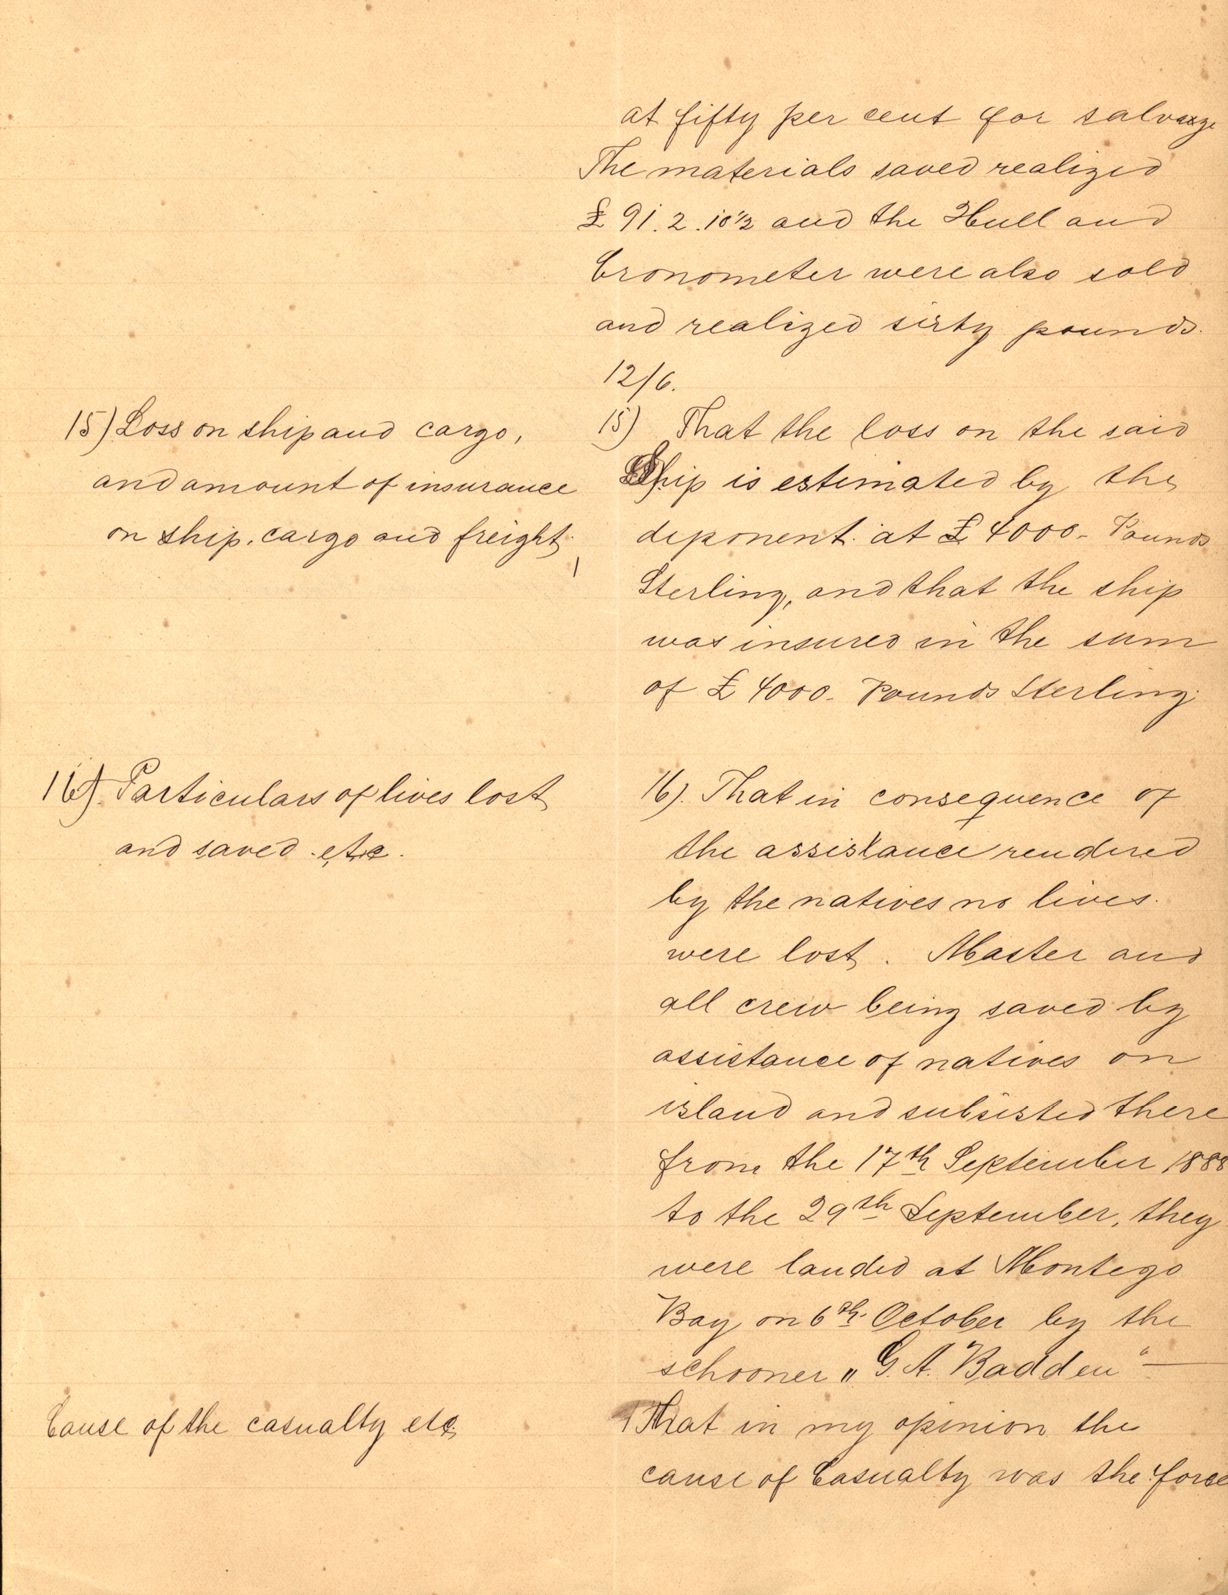 at fifty per cent for salvage
The materials saved realized
£ 91. 2. 10½ and the Hull and
Cronometer were also sold
and realized sixty pounds.
12/6.
15) Loss on ship and cargo,
and amount of insurance
on ship, cargo and freight
15) That the loss on the said
Ship is estimated by the
deponent at £ 4000 - Pounds
Sterling, and that the ship
was insured in the sum
of £ 4000 - Pounds Sterling.
16) Particulars of lives lost
and saved etc.
16). That in consequence of
the assistance rendered
by the natives no lives
were lost. Master and
all crew being saved by
assistance of natives on
island and subsisted there
from the 17th September 1888
to the 29th September, they
were landed at Montego
Bay on 6th October by the
schooner „ G. A. Badden “ —
Cause of the casualty etc
That in my opinion the
cause of Casualty was the force